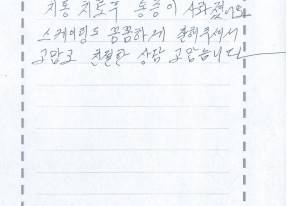 치통 치료후 통증이 사라졌어요.
스케일링도 꼼꼼하게 잘해주셔서
고맙고 친절한 상담 고맙습니다